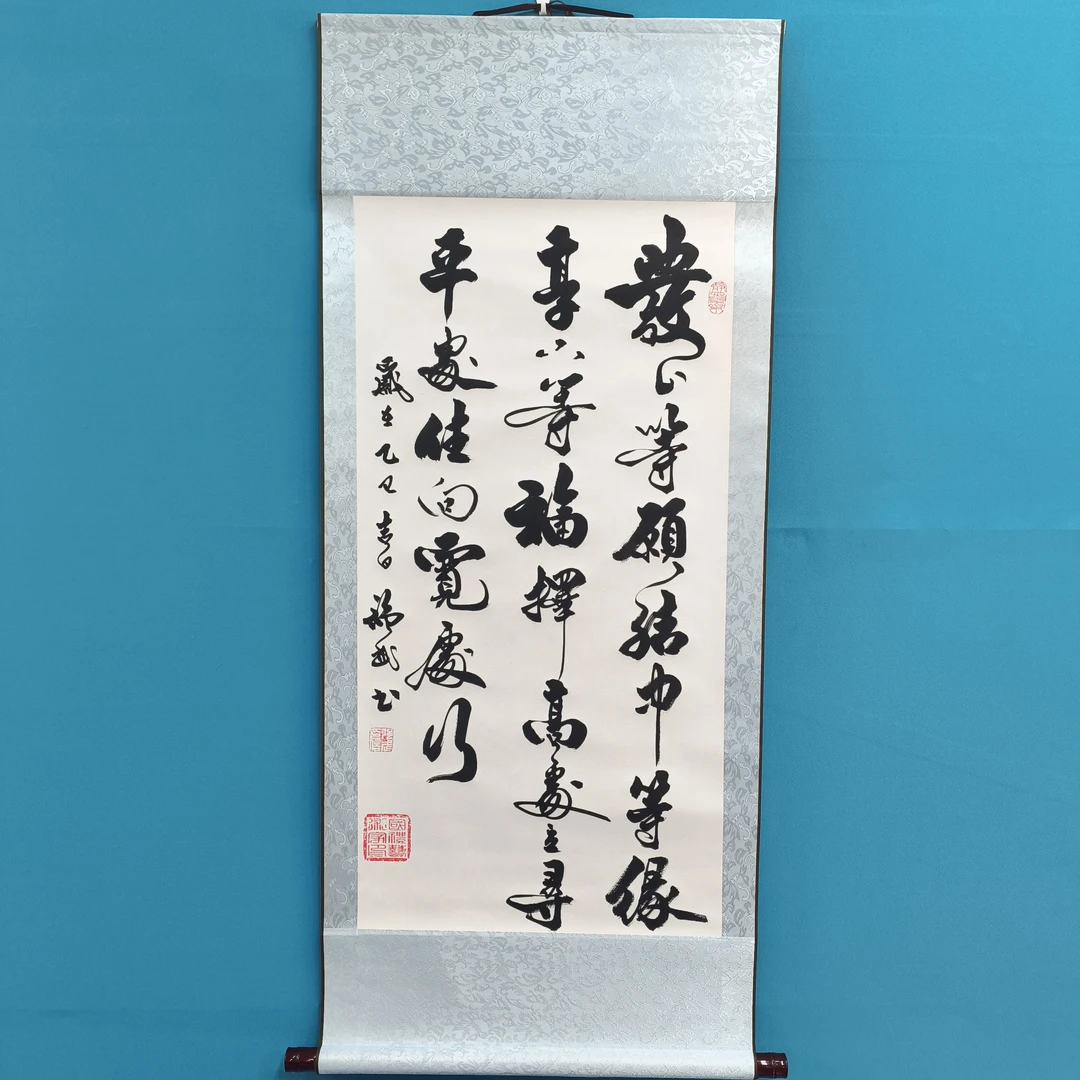 發上等願結中等緣
享下等福擇高處立尋
平處住向寬處行
歲在乙巳春日書